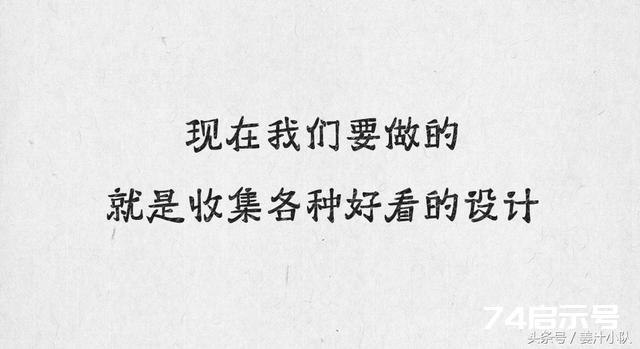 现在我们要做的
就是收集各种好看的设计
74启示号
头条号/姜汁小队